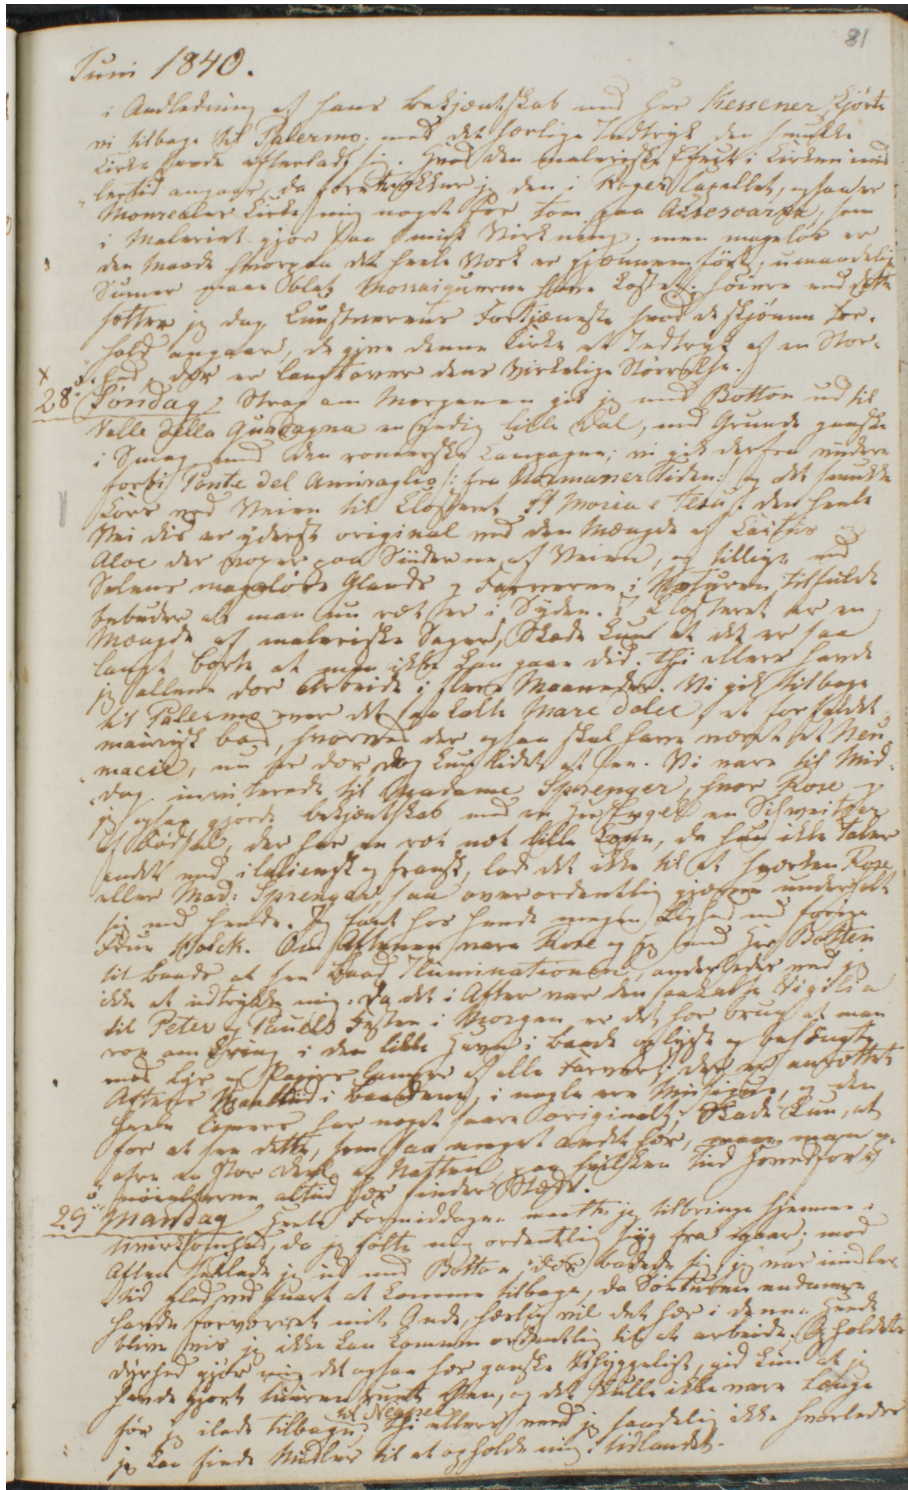 81
Juni 1840.
i Andledning af hans bekjentskab med Herr Kessener, kjørte
vi tilbage til Palermo, med det herlige Indtryk den smukke
Kirke havde efterladt sig. Hvad den maleriske Efect i Kirken imid
lertid angaaer, da foretrækker jeg den i Roger Capellet, ogsaa er
Monreales Kirke mig noget for tom paa
i Maleriet gjør saa smuk Virkning; men mageløs er
den Maade hvorpaa det heele Værk er gjennemført; umaadelig
Summer maae blot Mosaiquerne have kostet; høiere end dette
sætter jeg dog Kunstnerens Fortjæneste hvad de skjønne For-
hold angaaer, de give denne Kirke et Indtryk af en Stor-
hed, der er langt over dens virkelige Størrelse.
x
28de Søndag, Strax om Morgenen gik jeg med Botton ud til
Valle della Guadagna en yndig lille Dal, med Grunde ganske
i Smag med den romerske Campagne; vi gik derfra videre
forbi Ponte del Amiraglio /: fra Normanner Tiden :/ og det smukke
Kors ved Veien til Closteret St Maria e Jesu. den heele
Vei did er yderst original ved den Mængde af Caitus og
Aloe der voxer paa Siderne af Veien, og tillige med
Solens mageløse Glands og Farverne i Naturen, tilfulde
bebuder at man nu ret er i Syden. I Closteret er en
Mængde af maleriske Sager, Skade kun at det er saa
langt borte at man ikke kan gaae did. thi ellers havde
jeg allene der Arbeide i flere Maaneder. Vi gik tilbage
til Palermo over det saakaldte Mare dolce, et forfaldet
maurisk bad, hvorved der ogsaa skal have været et Neu
macie, nu er der dog kun lidet at see. Vi vare til Mid-
dag inviterede til Madame Sprenger, hvor Rose og
jeg ogsaa gjorde bekjentskab med en Hr Engell en Schweitzer
af Fødsel, der har en ret net lille Kone, da hun ikke taler
andet end italiensk og fransk, lod det ikke til at hverken Rose
eller Mad: Sprenger, saa overordentlig gjerne underholdt
sig med hende. Jeg fandt hos hende megen Lighed med forige
Frue Holck. Om Aftenen vare Rose og jeg med Hr Botten
til baads at see baad Iluminationen, anderledes veed jeg
ikke at udtrykke mig. Da det i Aften var den saakaldte Vigilia
til Peter og Pauels Festen i Morgen er det her brug at man
roer om kring i den lille Havn i baade oplyste og behængte
med Lys og Papiers lamper af alle Farver; der er anrettet
Aftens Maaltid i baadene, i nogle ere Musiquer, og den
heele Commers har noget saare originalt; Skade kun, at
for at see dette, som saa meget andet her, maae man op-
ofre en stor deel af Natten, paa hvilken Tiid Hovedfor
nøielserne altiid her finder Sted.
29de Mandag, Heele Formiddagen maatte jeg tilbringe hjemme i
Uvirksomhed, da jeg følte mig ordentlig syg fra igaar; mod
Aften seilede jeg ud med Botton der badede sig, jeg var imidler
tid glad ved snart at komme tilbage, da Søeturen endmere
havde forværret mit Onde, herlig vil det her i denne Heede
blive hvis jeg ikke kan komme ordentlig til at arbeide. Opholdets
dyrhed gjør mig det ogsaa her ganske uhyggeligt, gid kun at jeg
havde gjort tuuren rundt Øen, og det skulle ikke vare længe
før jeg ilede tilbage til Neapel. thi ellers veed jeg saadelig ikke hvorledes
jeg kan finde Midler til at opholde mig i Udlandet.